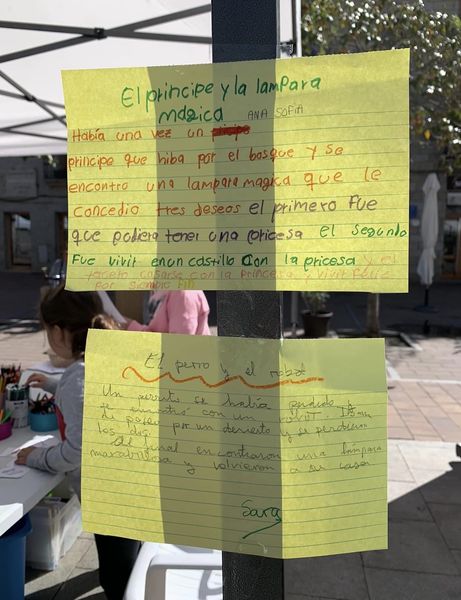 El principe y la lampara
magica ANA SOFIA
Había una vez un
principe que hiba por el bosque y se
encontro una lampara magica que le
concedio tres deseos el primero fue
que podiera tener una pricesa el segundo
fue vivit en un castillo con la pricesa y el
tercero casarse con la princesa y vivir feliz
por siempre FIN
El perro y el robot
Un perrito se había perdido
encontró con un robot
paseo por un desierto y se perdieron
los dos
Al final encontraron una lampara
marabillosa y volvieron a su casa
Sara